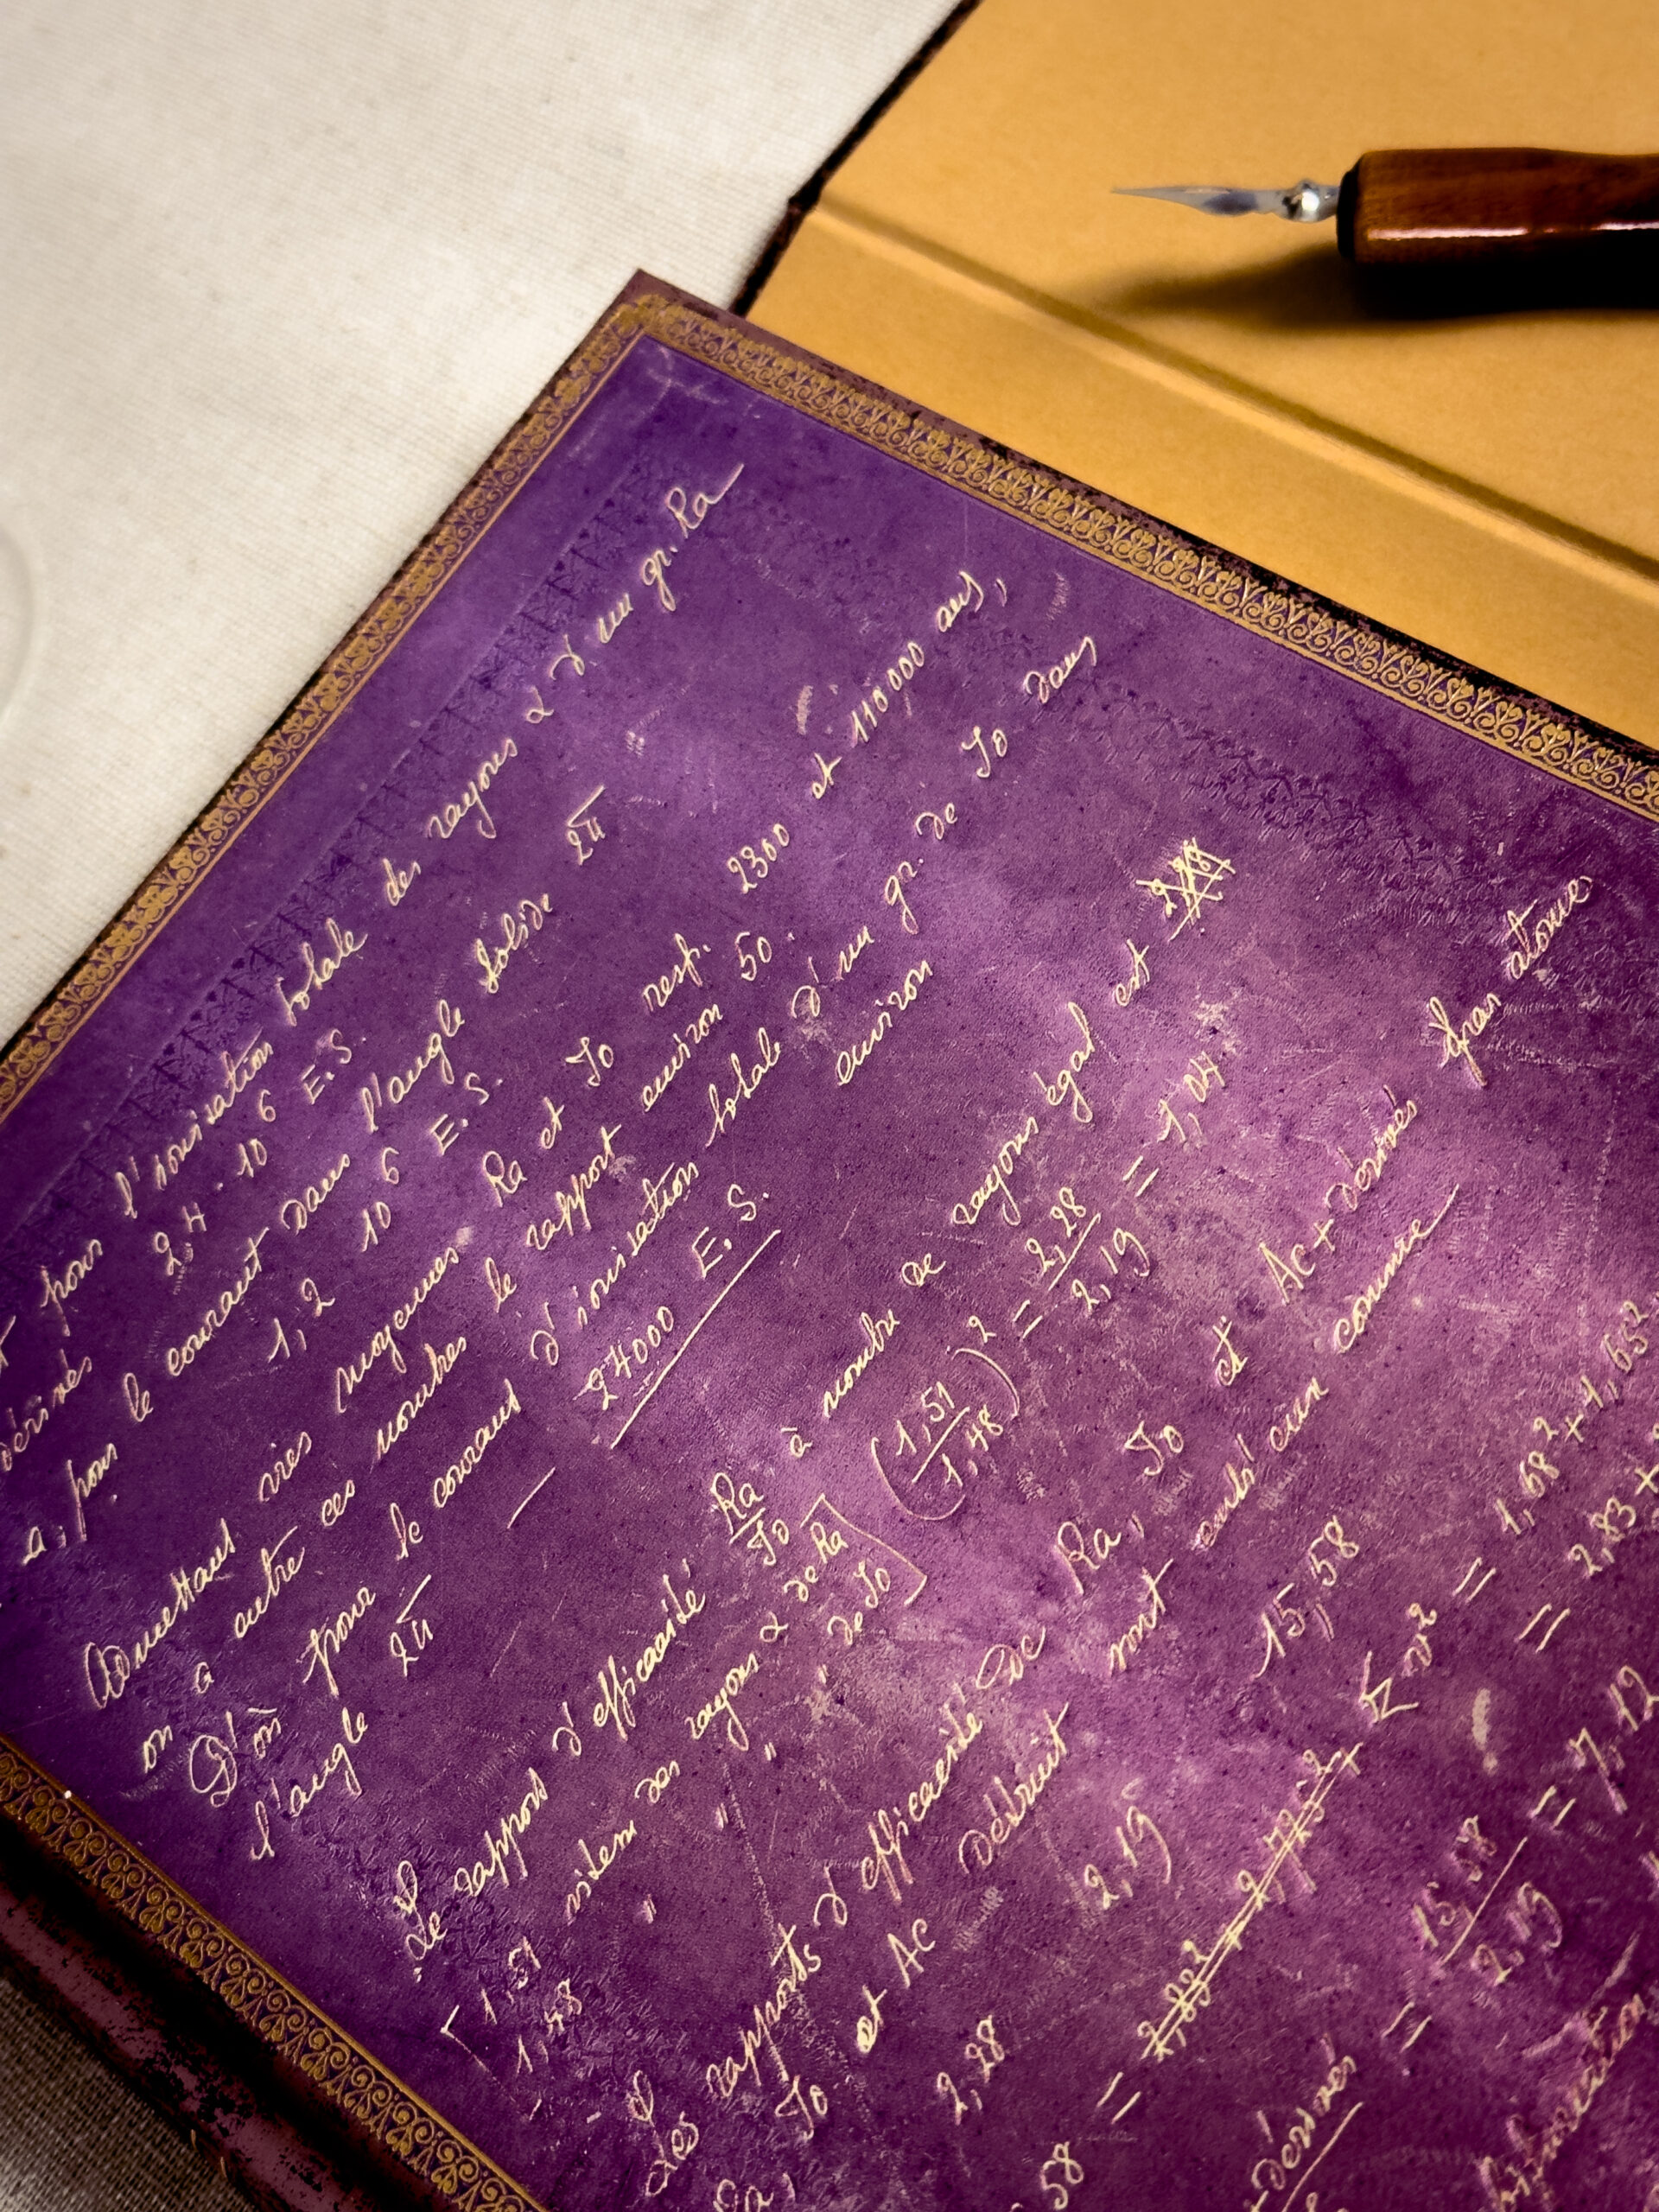 pour l'ionisation totale des rayons α d'un gr. Ra
dérivés 2,4 . 10 6 E.S.
a, pour le courant dans l'angle solide 2π
1,2 10 6 E. S.
Admettant vies moyennes Ra et Io resp. 2300 et 110000 ans,
on a entre ces nombres le rapport environ 50.
D'où pour le courant d'ionisation totale d'un gr. de Io dans
l'angle 2π — 24000 E. S. environ
Le rapport d'efficacité Ra/Io à nombre de rayons égal est
[1,51 vitesse des rayons α de Ra] (1,51/1,48)2 = 2,28/2,19 = 1,04
1,48 " " " " de Io
Les rapports d'efficacité de Ra, Io et Ac+dérivés par atome
Io et Ac détruit sont entr'eux comme
Ra,
2,28 2,19 15,58
58 = Σv2 = 1,682+1,652
= 2,83+
+dérivés = 15,58/2,19 = 7,12